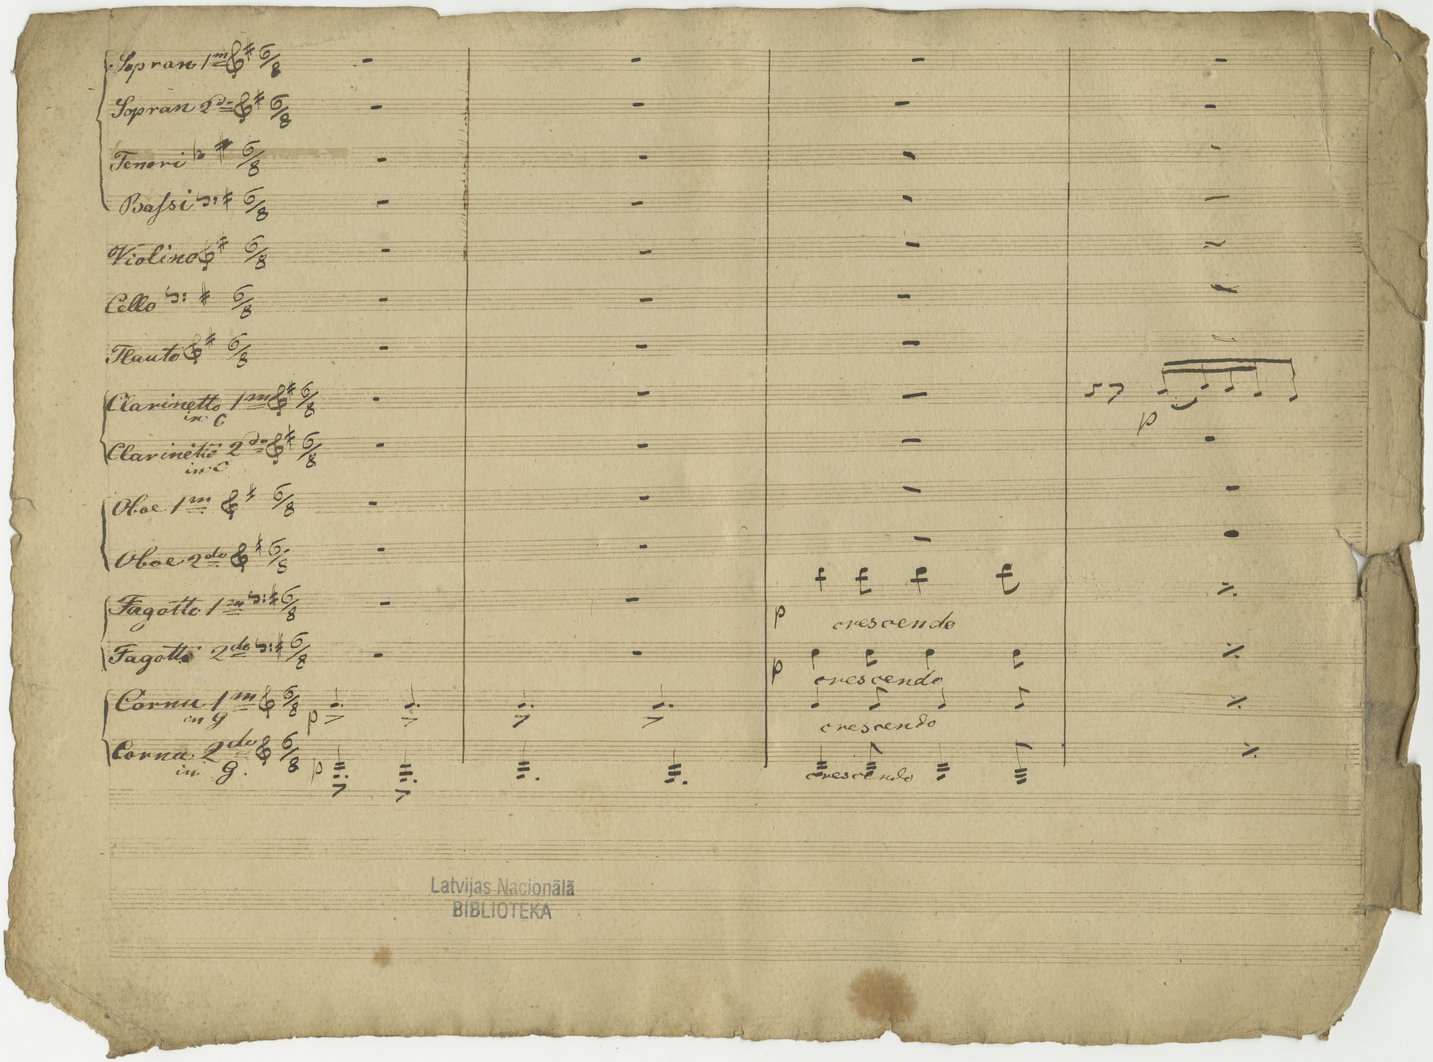 Sopran 1m 6/8
Sopran 2do 6/8
Tenori 6/8
Bassi 6/8
Violino 6/8
Cello 6/8
Flauto 6/8
Clarinetto 1m 6/8
in C
p
Clarinetto 2do 6/8
in C
Oboe 1m 6/8
Oboe 2do 6/8
Fagotto 1m 6/8
p crescendo
Fagotto 2do 6/8
p crescendo
Cornu 1m 6/8 p
in g
crescendo
Cornu 2do 6/8 p
in g.
crescendo
Latvijas Nacionālā
BIBLIOTEKA